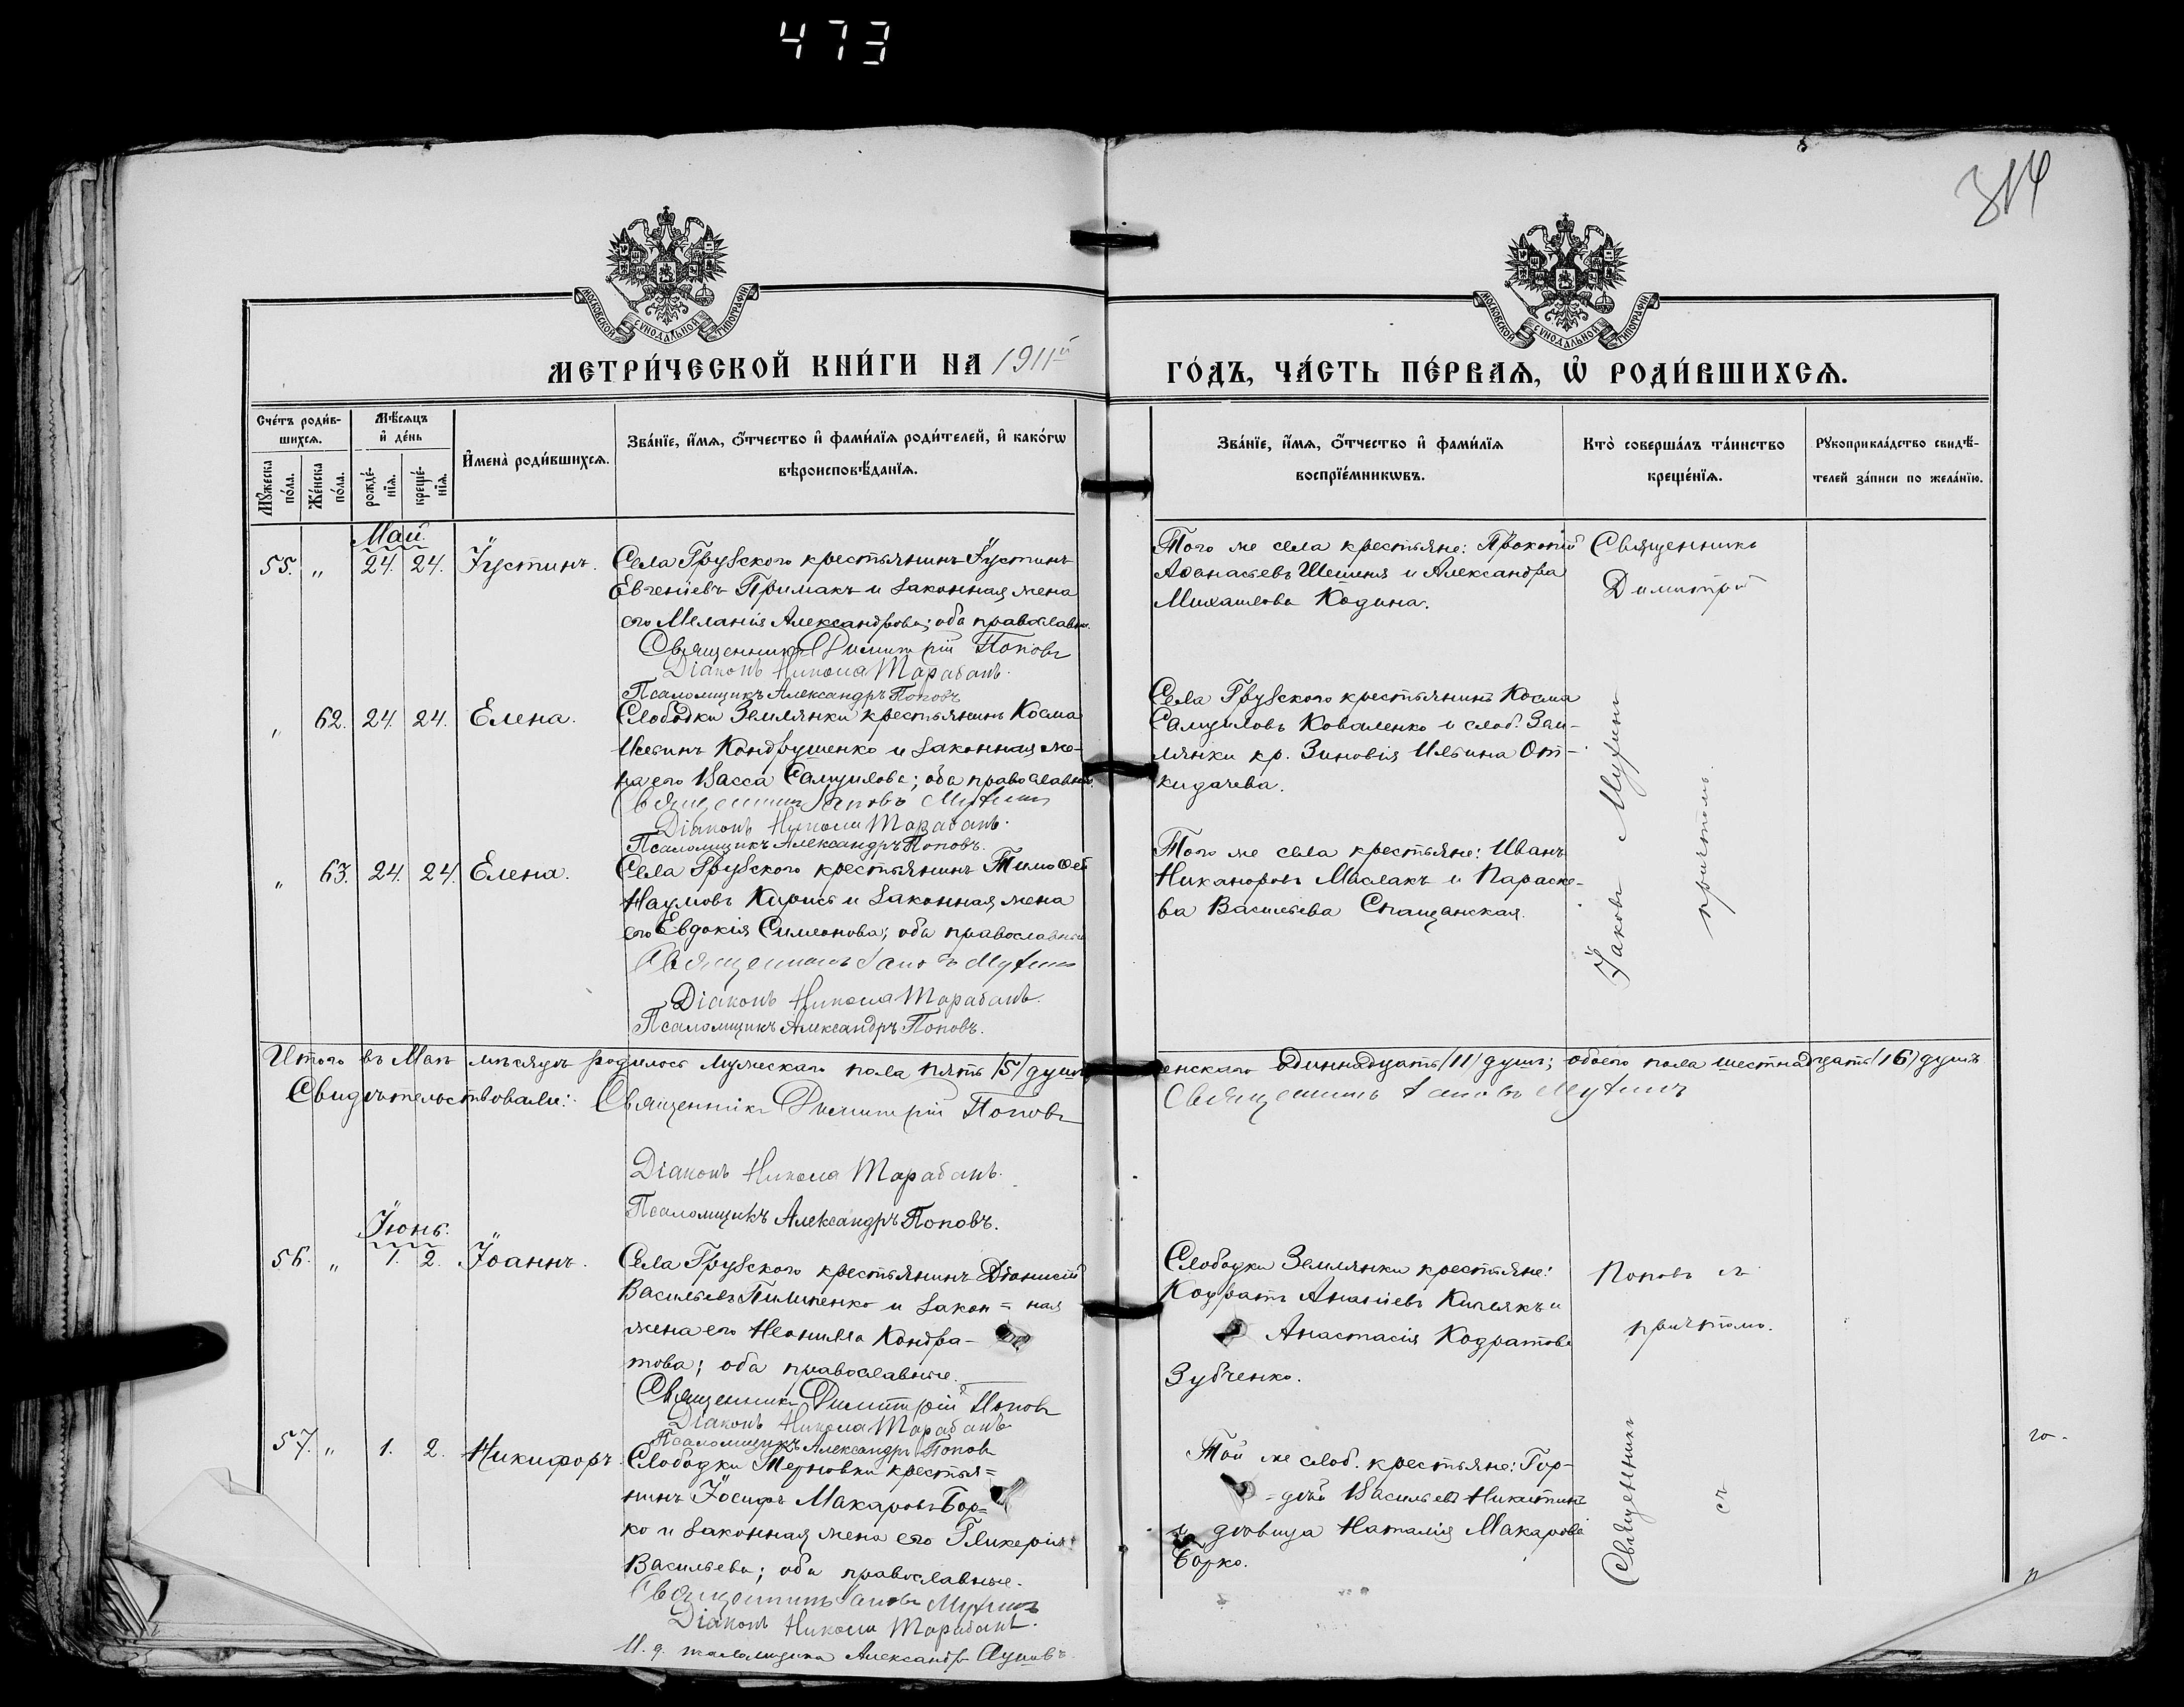 473
314
МОСКОВСКОЙ СѴНОДАЛЬНОЙ ТИПОГРАФІИ
МОСКОВСКОЙ СѴНОДАЛЬНОЙ ТИПОГРАФІИ
МЕТРИ́ЧЕСКОЙ КНИ́ГИ НА 1911й
ГО́ДЪ, ЧА́СТЬ ПЕ́РВАѦ, Ѡ҆ РОДИ́ВШИХСѦ.
Сче́тъ роди́в-
шихсѧ.
Мѣ́сѧцъ
и҆ де́нь
Мꙋ́жеска
по́ла.
Же́нска
по́ла.
рожде́-
нїѧ.
креще́-
нїѧ.
И҆мена̀ роди́вшихсѧ.
Зва́нїе, и҆́мѧ, ѻ҆́тчество и҆ фами́лїѧ роди́телей, и҆ како́гѡ
вѣроисповѣ́данїѧ.
Зва́нїе, и҆́мѧ, ѻ҆́тчество и҆ фами́лїѧ
воспрїе́мникѡвъ.
Кто̀ соверша́лъ та́инство
креще́нїѧ.
Рꙋкоприкла́дство свидѣ́-
телей за́писи по жела́нїю.
Май.
55. „ 24. 24. Іустинъ.
Села Грузского крестьянинъ Іустинъ
Евгеніевъ Примакъ и законная жена
его Меланія Александрова; оба православн.
Священникъ Димитрій Поповъ
Діаконъ Никола Тарабанъ.
Псаломщикъ Александръ Поповъ
Того же села крестьяне: Прокопій
Аѳанасьевъ Шешеня и Александра
Михаилова Кодина.
Священникъ
Димитрій
„ 62. 24. 24. Елена.
Слободки Землянки крестьянинъ Косма
Ильинъ Кондрушенко и законная же-
на его Васса Самуилова; оба православные.
Священникъ Іаковъ Мухинъ
Діаконъ Никола Тарабанъ.
Псаломщикъ Александръ Поповъ.
Села Грузского крестьянинъ Косма
Самуиловъ Коваленко и слоб. Зем-
лянки кр. Зиновія Ильина От-
кидачева.
Іаковъ Мухинъ
причтомъ.
„ 63. 24. 24. Елена.
Села Грузского крестьянинъ Тимоѳей
Наумовъ Кирись и законная жена
его Евдокія Симеонова; оба православные
Священникъ Іаковъ Мухинъ
Діаконъ Никола Тарабанъ.
Псаломщикъ Александръ Поповъ.
Того же села крестьяне: Иванъ
Никаноровъ Маслакъ и Параске-
ва Васильева Спащанская.
Итого въ Маѣ мѣсяцѣ родилось мужескаго пола пять /5/ душъ, енскаго одиннадцать /11/ душъ; обоего пола шестнадцать /16/ душъ
Свидѣтельствовали: Священникъ Димитрій Поповъ
Священникъ Іаковъ Мухинъ
Діаконъ Никола Тарабанъ.
Псаломщикъ Александръ Поповъ.
Іюнь.
56. „ 1. 2. Іоаннъ.
Села Грузского крестьянинъ Діонисій
Васильевъ Пилипенко и закон= ная
жена его Неонилла Кондра-
това; оба православные.
Священникъ Димитрій Поповъ
Діаконъ Никола Тарабанъ
Псаломщикъ Александръ Поповъ
Слободки Землянки крестьяне:
Кодратъ Ананіевъ Кизлякъ и
Анастасія Кодратова
Зубченко.
Поповъ съ
причтомъ.
57. „ 1. 2. Никифоръ.
Слободки Терновки крестья=
нинъ Іосифъ Макаровъ Бор=
ко и законная жена его Гликерія
Васильева; оба православные.
Священникъ Іаковъ Мухинъ
Діаконъ Никола Тарабанъ.
И. д. псаломщика Александръ
Той же слоб. крестьяне: Гор-
=дѣй Васильевъ Никитинъ
и дѣвица Наталія Макарова
Борко.
Священникъ
съ
го-